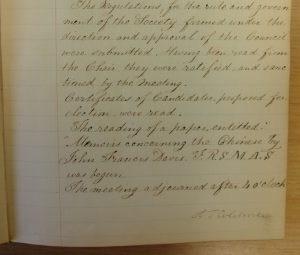 The Regulations, for the rule and govern
ment of the Society framed under the
direction and approval of the Council
were submitted. Having been read from
the Chair they were ratified, and sanc
tioned by the meeting.
Certificates of Candidates, proposed for
election, were read.
The reading of a paper, entitled "
"Memoirs concerning the Chinese by
John Francis Davis. F.R.S. M.A.S
was begun
The meeting adjourned after 4 o'clock